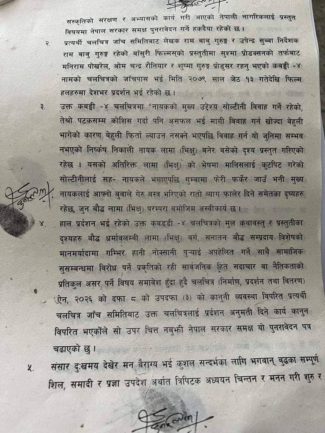 संस्कृतिको संरक्षण र अभ्यासको कार्य गरी आएको नेपाली नागरिकलाई प्रस्तुत
विषयमा नेपाल सरकार समक्ष पुनरावेदन गर्ने हकदैया रहेको छ।
२. प्रत्यर्थी चलचित्र जाँच समितिबाट लेखक राम बाबु गुरुङ्ग र उपेन्द्र सुब्बा निर्देशक
राम बाबु गुरुङ्ग रहेको बाँसुरी फिल्मसको प्रस्तुतीमा सुरभी प्रोडक्सनको तर्फबाट
मनिराम पोखरेल, ओम चन्द्र रौनियार र शुष्मा गुरुङ्ग प्रोड्युसर रहनु भएको कबड्डी -४
नामको चलचित्रको जाँचपास भई मिति २०७९ साल जेठ १३ गतेदेखि फिल्म
हलहरुमा देशभर प्रदर्शन भई रहेको छ।
३. उक्त कबड्डी -४ चलचित्रमा "नायकको मुख्य उद्देश्य सोल्टीनी विवाह गर्ने रहेको,
तेथो पटकसम्म कोशिस गर्दा पनि असफल भई मायी विवाह गर्न खोज्दा बेहुली
भागेको कारण बेहुली फिर्ता ल्याउन नसक्ने भएपछि विवाह गर्न यो जुनिमा सम्भव
नभएको निष्कर्ष निकाली नायक लामा (भिक्षु) बनेर बसेको दृश्य प्रस्तुत गरिएको
रहेछ। यसको अतिरिक्त लामा (भिक्षु) को भेषमा मानिसलाई कुटपिट गरेको
सोल्टीनीलाई सह- नायकले भगाएपछि गुम्बामा फेरी फर्केर जाउँ भनी मुख्य
नायकलाई आफ्नो बुवाले गेरु वस्त्र भनिएको रातो म्याण्ट फालेर दिने समेतका दृष्यहरु
रहेछ, जुन बौद्ध लामा (भिक्षु) परम्परा समाजिमा अस्वीकार्य छ।
४. हाल प्रदर्शन भई रहेको उक्त कबड्डी -४ चलचित्रको मूल कथावस्तु र प्रस्तुतीका
दृश्यहरु बौद्ध धर्मावलम्बी लामा (भिक्षु) वर्ग, सनातन बौद्ध सम्प्रदाय विशेषको
मानमर्यादामा गम्भिर हानी नोक्सानी पुर्‍याई अपहेलित गर्नै साथै सामाजिक
सुसम्बन्धमा विरोध पर्ने प्रकृतिको रही सार्वजनिक हित सदाचार वा नैतिकताको
प्रतिकुल असर पर्ने विषय समावेश हुँदा हुँदै चलचित्र (निर्माण, प्रदर्शन तथा वितरण)
ऐन, २०२६ को दफा ८ को उपदफा (३) को कानुनी व्यवस्था विपरित प्रत्यर्थी
चलचित्र जाँच समितिबाट उक्त चलचित्रलाई प्रदर्शन अनुमति दिने कार्य कानुन
विपरित भएकोले सो उपर चित्त नबुझी नेपाल सरकार समक्ष यो पुनरावेदन पत्र
चढाएको छ।
५. संसार दुःखमय देखेर मन वैराग्य भई कुशल सन्दर्भका लागि भगवान् बुद्धका सम्पूर्ण
शिल, समादी र प्रज्ञा उपदेश अर्थात त्रिपिटक अध्ययन चिन्तन र मनन गरी गुरु र